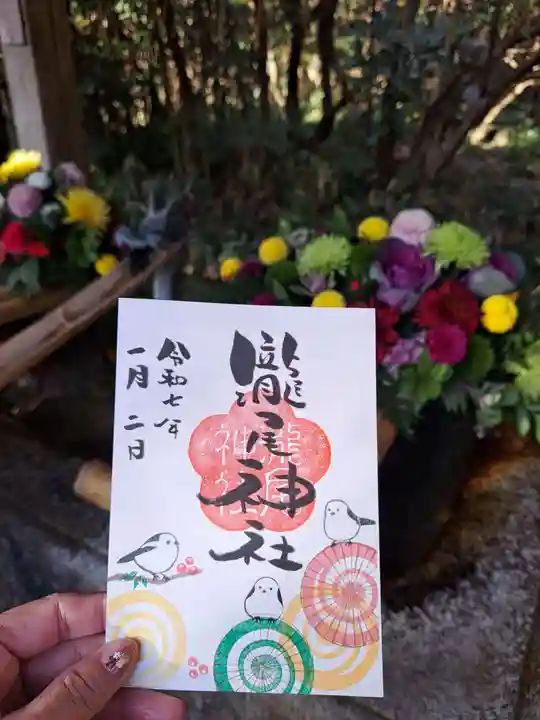 瀧尾神社
瀧尾神社
令和七年
一月二日